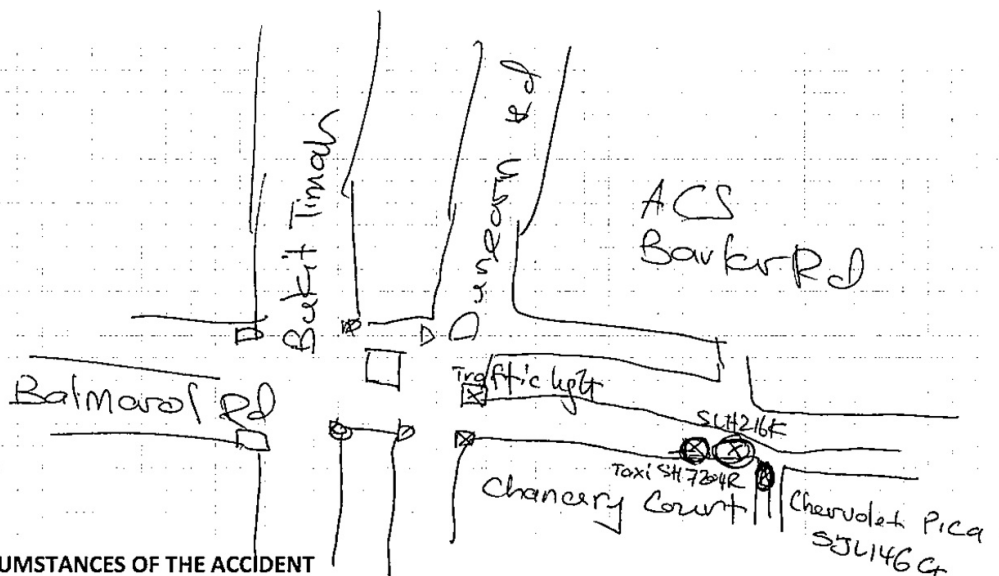 Bukit Timah
Dunearn Rd
ACS
Barker Rd
Balmoral Rd
Traffic light
SLH216K
Taxi SH7204R
Chancery Court
Chevrolet Pica
SJL146G
UMSTANCES OF THE ACCIDENT